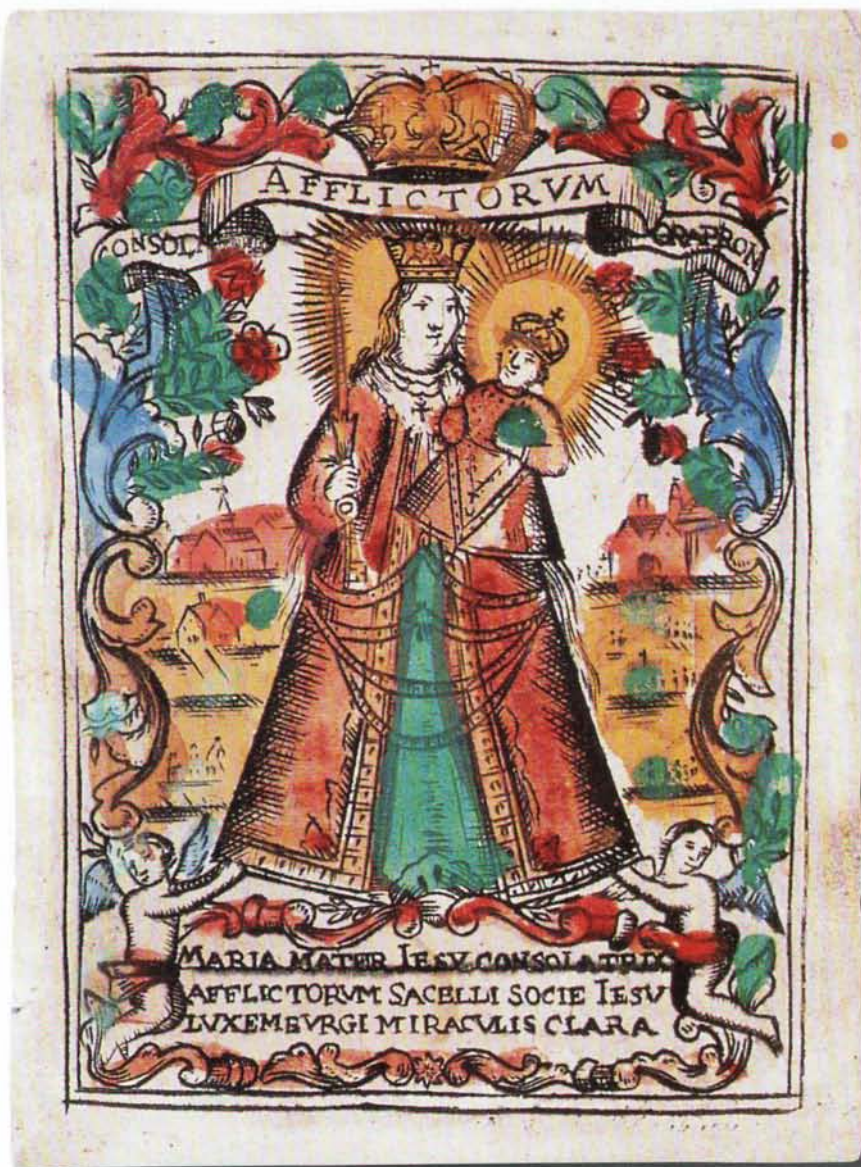 AFFLICTORVM
ORAPRON
MARIA MATER IESV CONSOLATRIX
AFFLICTORVM SACELLI SOCIE IESV
LVXEMBVRGI MIRACVLIS CLARA